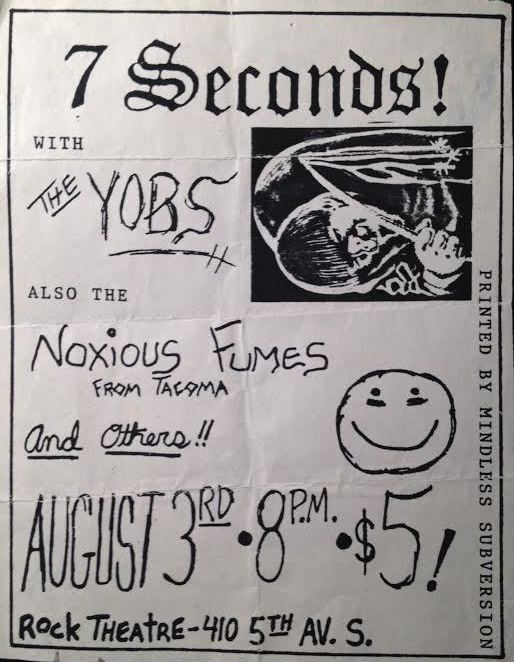 7 Seconds!
WITH
THE YOBS
ALSO THE
Noxious Fumes
FROM TACOMA
and Others!!
AUGUST 3RD • 8 P.M. • $5!
ROCK THEATRE - 410 5TH AV. S.
PRINTED BY MINDLESS SUBVERSION